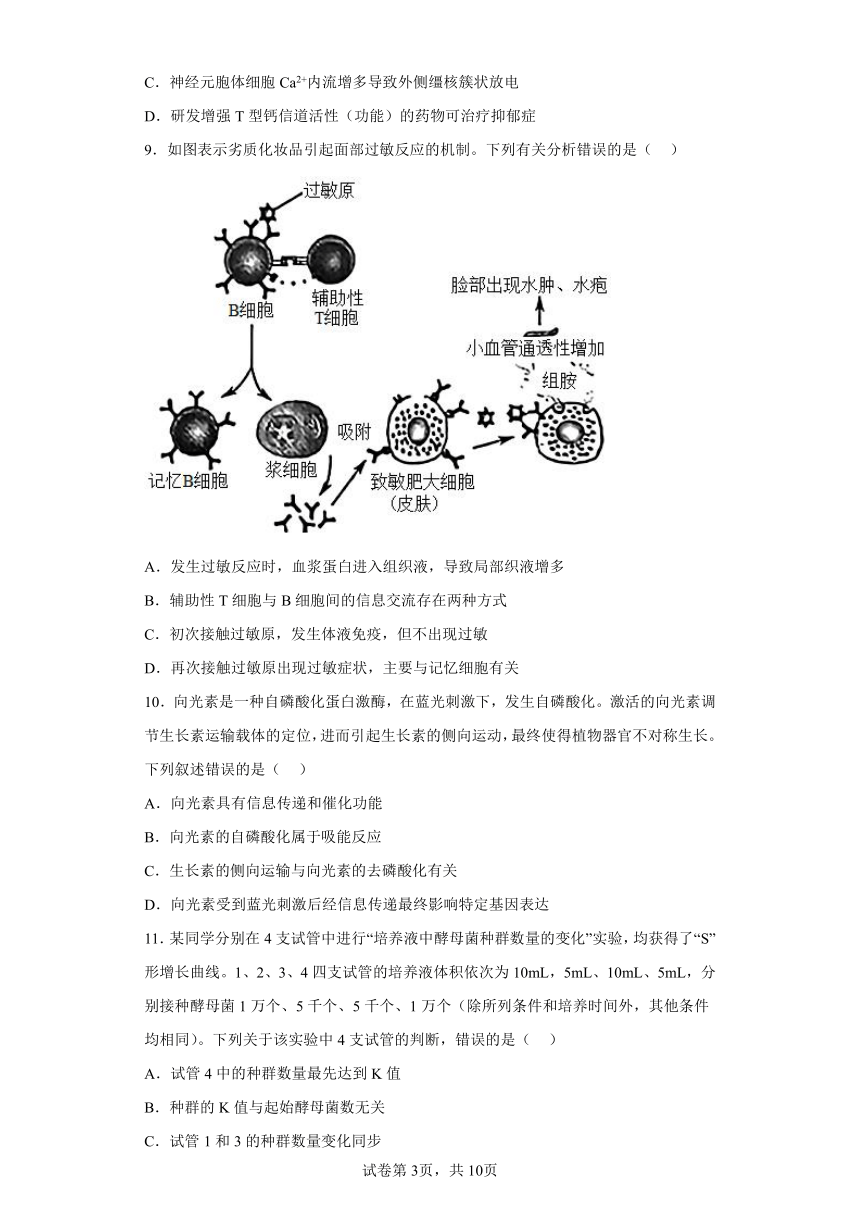 C．神经元胞体细胞 Ca²⁺内流增多导致外侧缰核簇状放电
D．研发增强 T 型钙信道活性（功能）的药物可治疗抑郁症
9．如图表示劣质化妆品引起面部过敏反应的机制。下列有关分析错误的是（　）
过敏原
B细胞
辅助性
T细胞
脸部出现水肿、水疱
小血管通透性增加
组胺
记忆B细胞
浆细胞
吸附
致敏肥大细胞
（皮肤）
A．发生过敏反应时，血浆蛋白进入组织液，导致局部织液增多
B．辅助性 T 细胞与 B 细胞间的信息交流存在两种方式
C．初次接触过敏原，发生体液免疫，但不出现过敏
D．再次接触过敏原出现过敏症状，主要与记忆细胞有关
10．向光素是一种自磷酸化蛋白激酶，在蓝光刺激下，发生自磷酸化。激活的向光素调
节生长素运输载体的定位，进而引起生长素的侧向运动，最终使得植物器官不对称生长。
下列叙述错误的是（　）
A．向光素具有信息传递和催化功能
B．向光素的自磷酸化属于吸能反应
C．生长素的侧向运输与向光素的去磷酸化有关
D．向光素受到蓝光刺激后经信息传递最终影响特定基因表达
11．某同学分别在 4 支试管中进行“培养液中酵母菌种群数量的变化”实验，均获得了“S”
形增长曲线。1、2、3、4 四支试管的培养液体积依次为 10mL，5mL、10mL、5mL，分
别接种酵母菌 1 万个、5 千个、5 千个、1 万个（除所列条件和培养时间外，其他条件
均相同）。下列关于该实验中 4 支试管的判断，错误的是（　）
A．试管 4 中的种群数量最先达到 K 值
B．种群的 K 值与起始酵母菌数无关
C．试管 1 和 3 的种群数量变化同步
试卷第 3页，共 10页